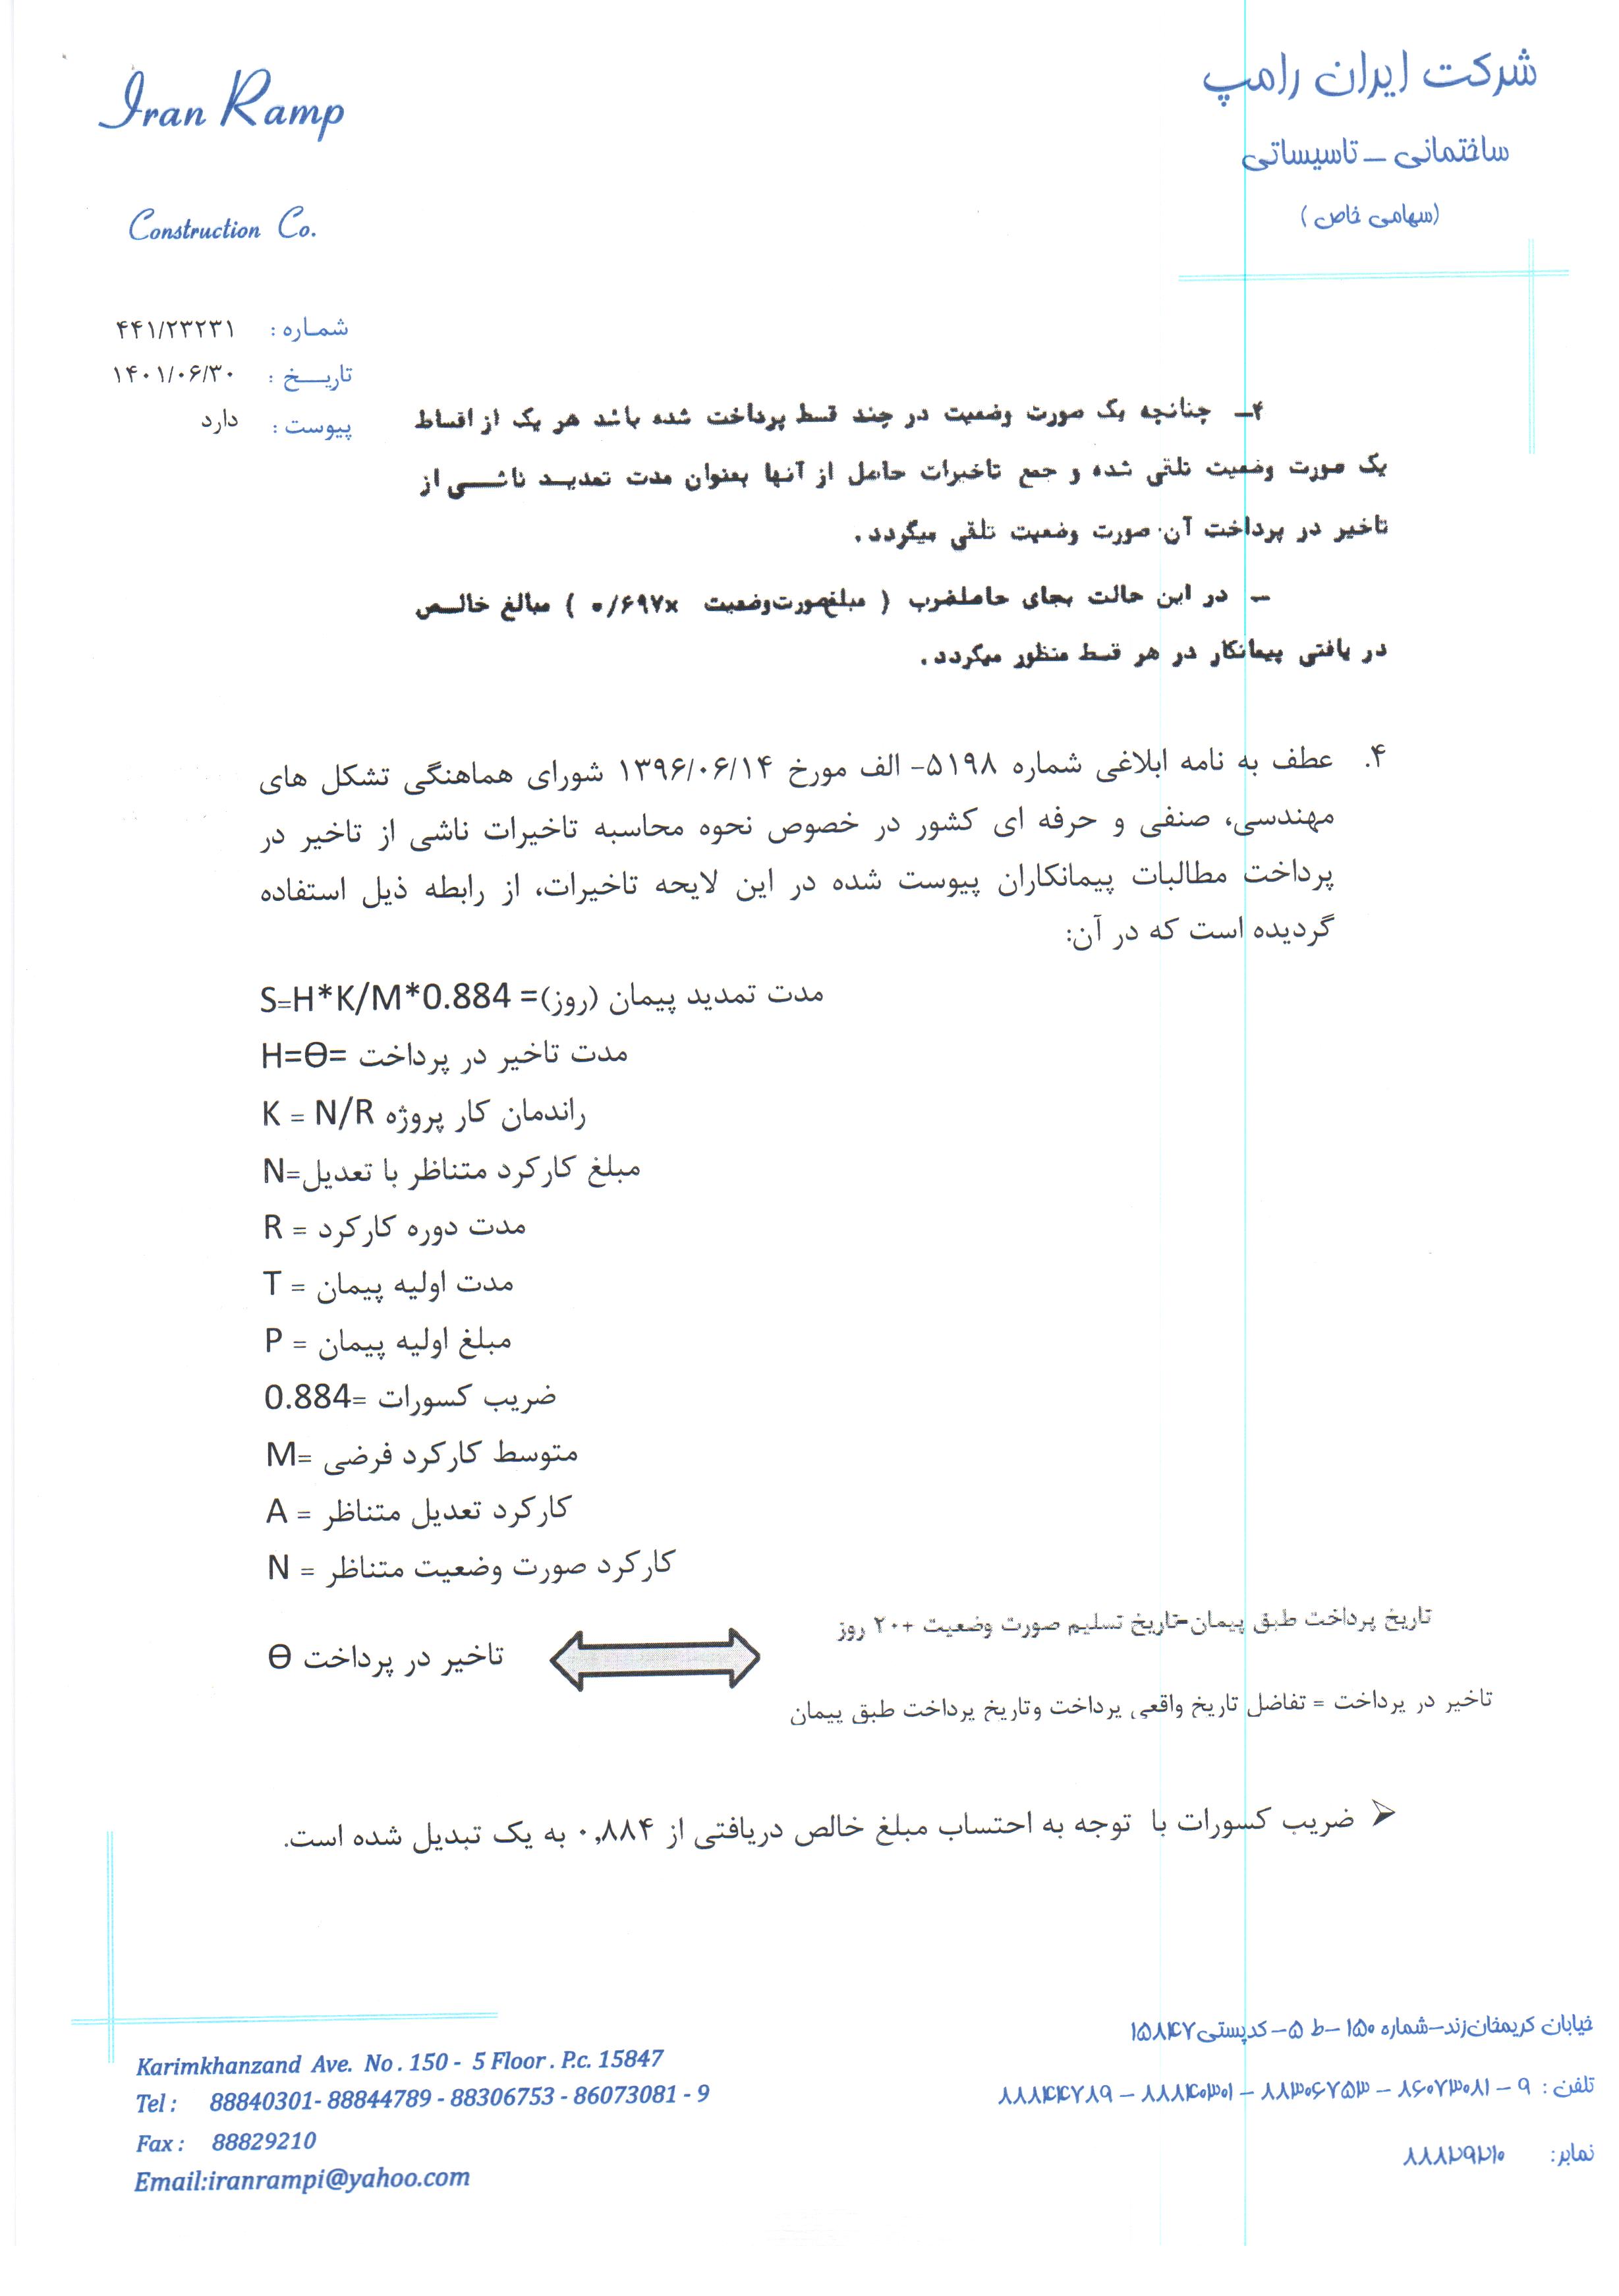 Iran Ramp
Construction Co.
شرکت ایران رامپ
ساختمانی – تاسیساتی
(سهامی خاص)
شماره : ۴۴۱/۲۳۲۳۱
تاریخ : ۱۴۰۱/۰۶/۳۰
پیوست : دارد
۴– چنانچه یک صورت وضعیت در چند قسط پرداخت شده باشد هر یک از اقساط
یک صورت وضعیت تلقی شده و جمع تاخیرات حاصل از آنها بعنوان مدت تمدید ناشی از
تاخیر در پرداخت آن صورت وضعیت تلقی میگردد.
– در این حالت بجای حاصلضرب ( مبلغ صورت وضعیت ×۰/۶۹۷ ) مبالغ خالص
دریافتی پیمانکار در هر قسط منظور میگردد.
۴. عطف به نامه ابلاغی شماره ۵۱۹۸- الف مورخ ۱۳۹۶/۰۶/۱۴ شورای هماهنگی تشکل های
مهندسی، صنفی و حرفه ای کشور در خصوص نحوه محاسبه تاخیرات ناشی از تاخیر در
پرداخت مطالبات پیمانکاران پیوست شده در این لایحه تاخیرات، از رابطه ذیل استفاده
گردیده است که در آن:
S=H*K/M*0.884 =مدت تمدید پیمان (روز)
H=Ɵ= مدت تاخیر در پرداخت
K = N/R راندمان کار پروژه
N=مبلغ کارکرد متناظر با تعدیل
R = مدت دوره کارکرد
T = مدت اولیه پیمان
P = مبلغ اولیه پیمان
0.884= ضریب کسورات
M= متوسط کارکرد فرضی
A = کارکرد تعدیل متناظر
N = کارکرد صورت وضعیت متناظر
تاریخ پرداخت طبق پیمان=تاریخ تسلیم صورت وضعیت +۲۰ روز
Ɵ تاخیر در پرداخت
تاخیر در پرداخت = تفاضل تاریخ واقعی پرداخت وتاریخ پرداخت طبق پیمان
➢ ضریب کسورات با توجه به احتساب مبلغ خالص دریافتی از ۰,۸۸۴ به یک تبدیل شده است.
خیابان کریمخان زند–شماره ۱۵۰ –ط ۵– کدپستی ۱۵۸۴۷
تلفن : ۹ – ۸۶۰۷۳۰۸۱ – ۸۸۳۰۶۷۵۳ – ۸۸۸۴۰۳۰۱ – ۸۸۸۴۴۷۸۹
نمابر: ۸۸۸۲۹۲۱۰
Karimkhanzand Ave. No . 150 - 5 Floor . P.c. 15847
Tel : 88840301- 88844789 - 88306753 - 86073081 - 9
Fax : 88829210
Email:iranrampi@yahoo.com